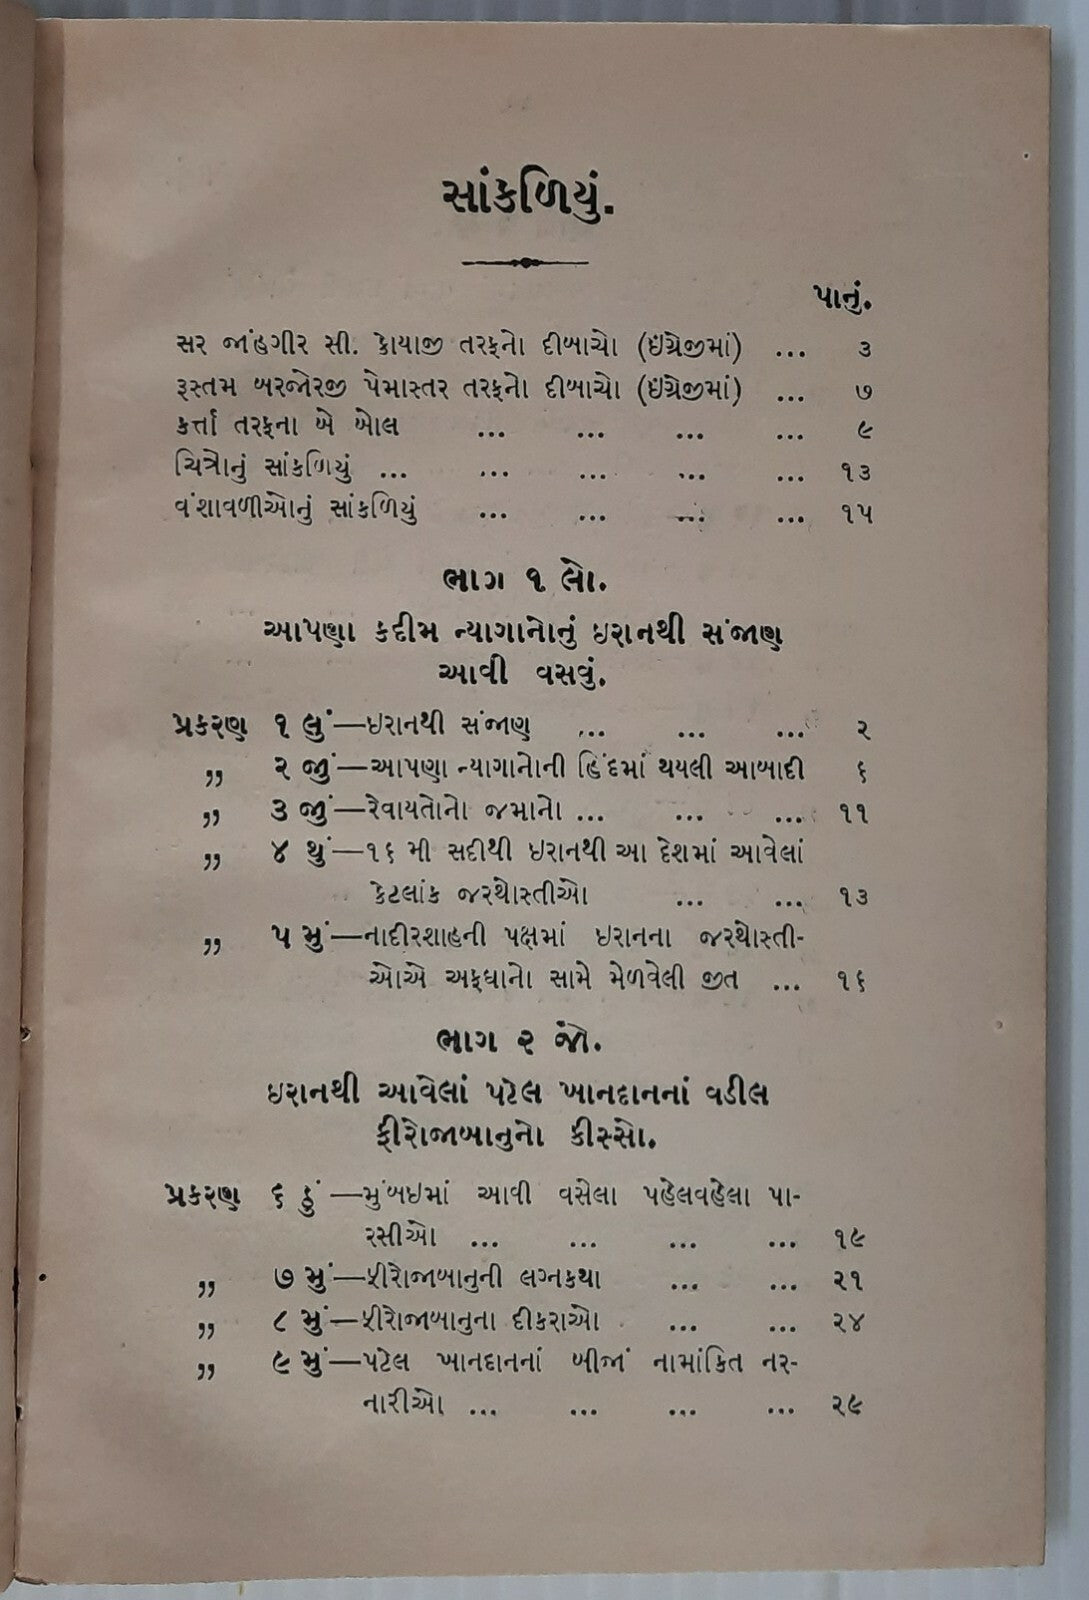 સાંકળિયું.
પાનું.
સર જાંહગીર સી. કોયાજી તરફનો દીબાચો (ઇંગ્રેજીમાં) ... ૩
રૂસ્તમ બરજોરજી પેમાસ્તર તરફનો દીબાચો (ઇંગ્રેજીમાં) ... ૭
કર્ત્તા તરફના બે બોલ ... ... ... ... ૯
ચિત્રોનું સાંકળિયું ... ... ... ... ... ૧૩
વંશાવળીઓનું સાંકળિયું ... ... ... ... ૧૫
ભાગ ૧ લો.
આપણા કદીમ ન્યાગાનોનું ઇરાનથી સંજાણ
આવી વસવું.
પ્રકરણ ૧ લું—ઇરાનથી સંજાણ ... ... ... ૨
,, ૨ જું—આપણા ન્યાગાનોની હિંદમાં થયલી આબાદી ૬
,, ૩ જું—રેવાયતોનો જમાનો ... ... ... ૧૧
,, ૪ થું—૧૬ મી સદીથી ઇરાનથી આ દેશમાં આવેલાં
કેટલાંક જરથોસ્તીઓ ... ... ૧૩
,, ૫ મું—નાદીરશાહની પક્ષમાં ઇરાનના જરથોસ્તી-
ઓએ અફઘાનો સામે મેળવેલી જીત ... ૧૬
ભાગ ૨ જો.
ઇરાનથી આવેલાં પટેલ ખાનદાનનાં વડીલ
ફીરોજાબાનુનો કીસ્સો.
પ્રકરણ ૬ ઠું—મુંબઇમાં આવી વસેલા પહેલવહેલા પા-
રસીઓ ... ... ... ... ૧૯
,, ૭ મું—ફીરોજાબાનુની લગ્નકથા ... ... ૨૧
,, ૮ મું—ફીરોજાબાનુના દીકરાઓ ... ... ૨૪
,, ૯ મું—પટેલ ખાનદાનનાં બીજાં નામાંકિત નર-
નારીઓ ... ... ... ... ૨૯